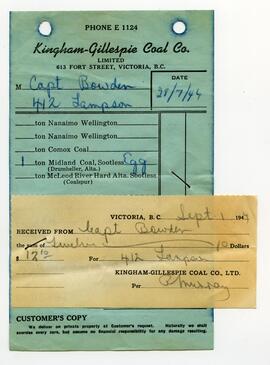 PHONE E 1124
Kingham-Gillespie Coal Co.
LIMITED
613 FORT STREET, VICTORIA, B.C.
M Capt Bowden
412 Lampson
DATE
28/7/44
ton Nanaimo Wellington
ton Nanaimo Wellington
ton Comox Coal
1 ton Midland Coal, Sootless Egg
(Drumheller, Alta.)
ton McLeod River Hard Alta. Sootless
(Coalspur)
VICTORIA, B. C. Sept 1 194
RECEIVED FROM Capt Bowden
the sum of Twelve 10 Dollars
$ 12 10 For 412 Lampson
KINGHAM-GILLESPIE COAL CO., LTD.
Per
CUSTOMER'S COPY
We deliver on private property at Customer's request. Naturally we shall
exercise every care, but assume no financial responsibility for any damage resulting.